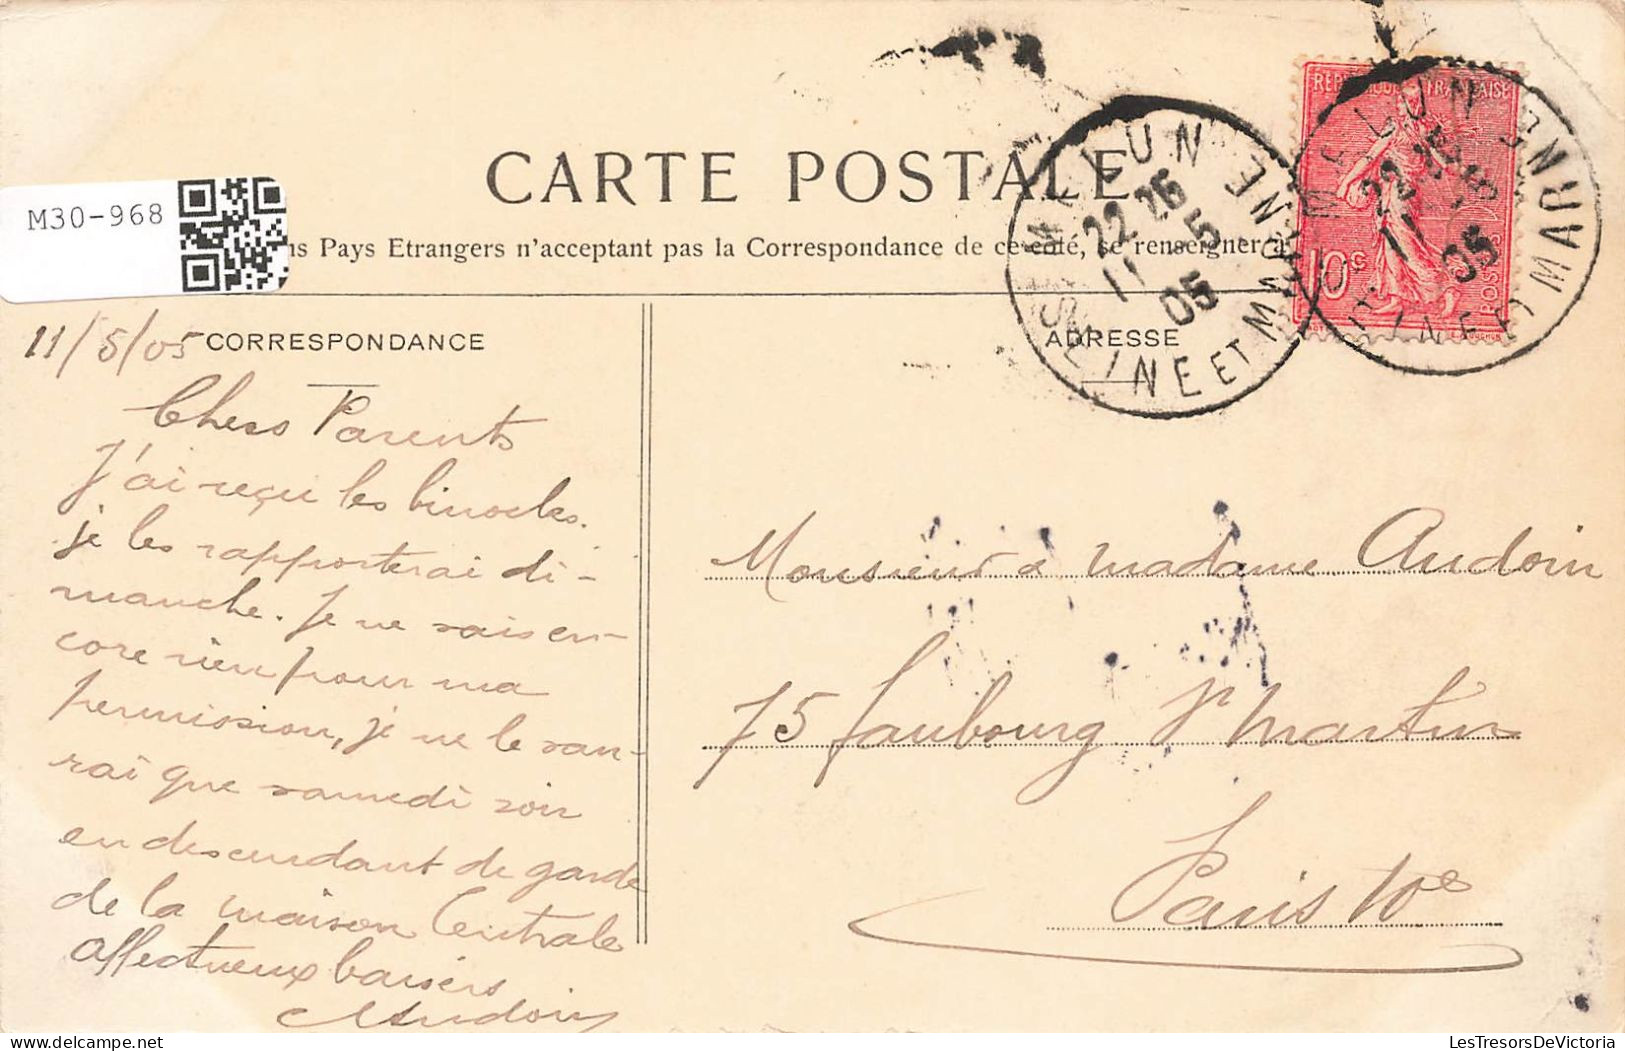 M30-968
CARTE POSTALE
ns Pays Etrangers n'acceptant pas la Correspondance de ce côté, se renseigner à
MELUN
SEINE ET MARNE
22 26
11 -5
05
REPUBLIQUE FRANÇAISE
10c
POSTES
MELUN
SEINE ET MARNE
22 26
11 -5
05
11/5/05
CORRESPONDANCE
ADRESSE
Chers Parents
J'ai reçu les binocles.
je les rapporterai di-
manche. Je ne sais en-
core rien pour ma
permission, je ne le sau-
rai que samedi soir
en descendant de garde
de la maison Centrale
affectueux baisers
Audoin
Monsieur & madame Audoin
75 faubourg St martin
Paris 10e
LesTresorsDeVictoria.com